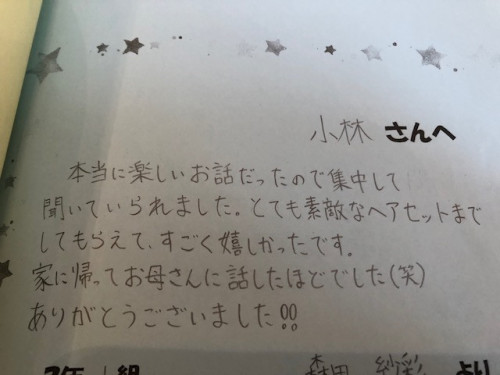 小林 さんへ
本当に楽しいお話だったので集中して
聞いていられました。とても素敵なヘアセットまで
してもらえて、すごく嬉しかったです。
家に帰ってお母さんに話したほどでした(笑)
ありがとうございました!!
組 森田 より